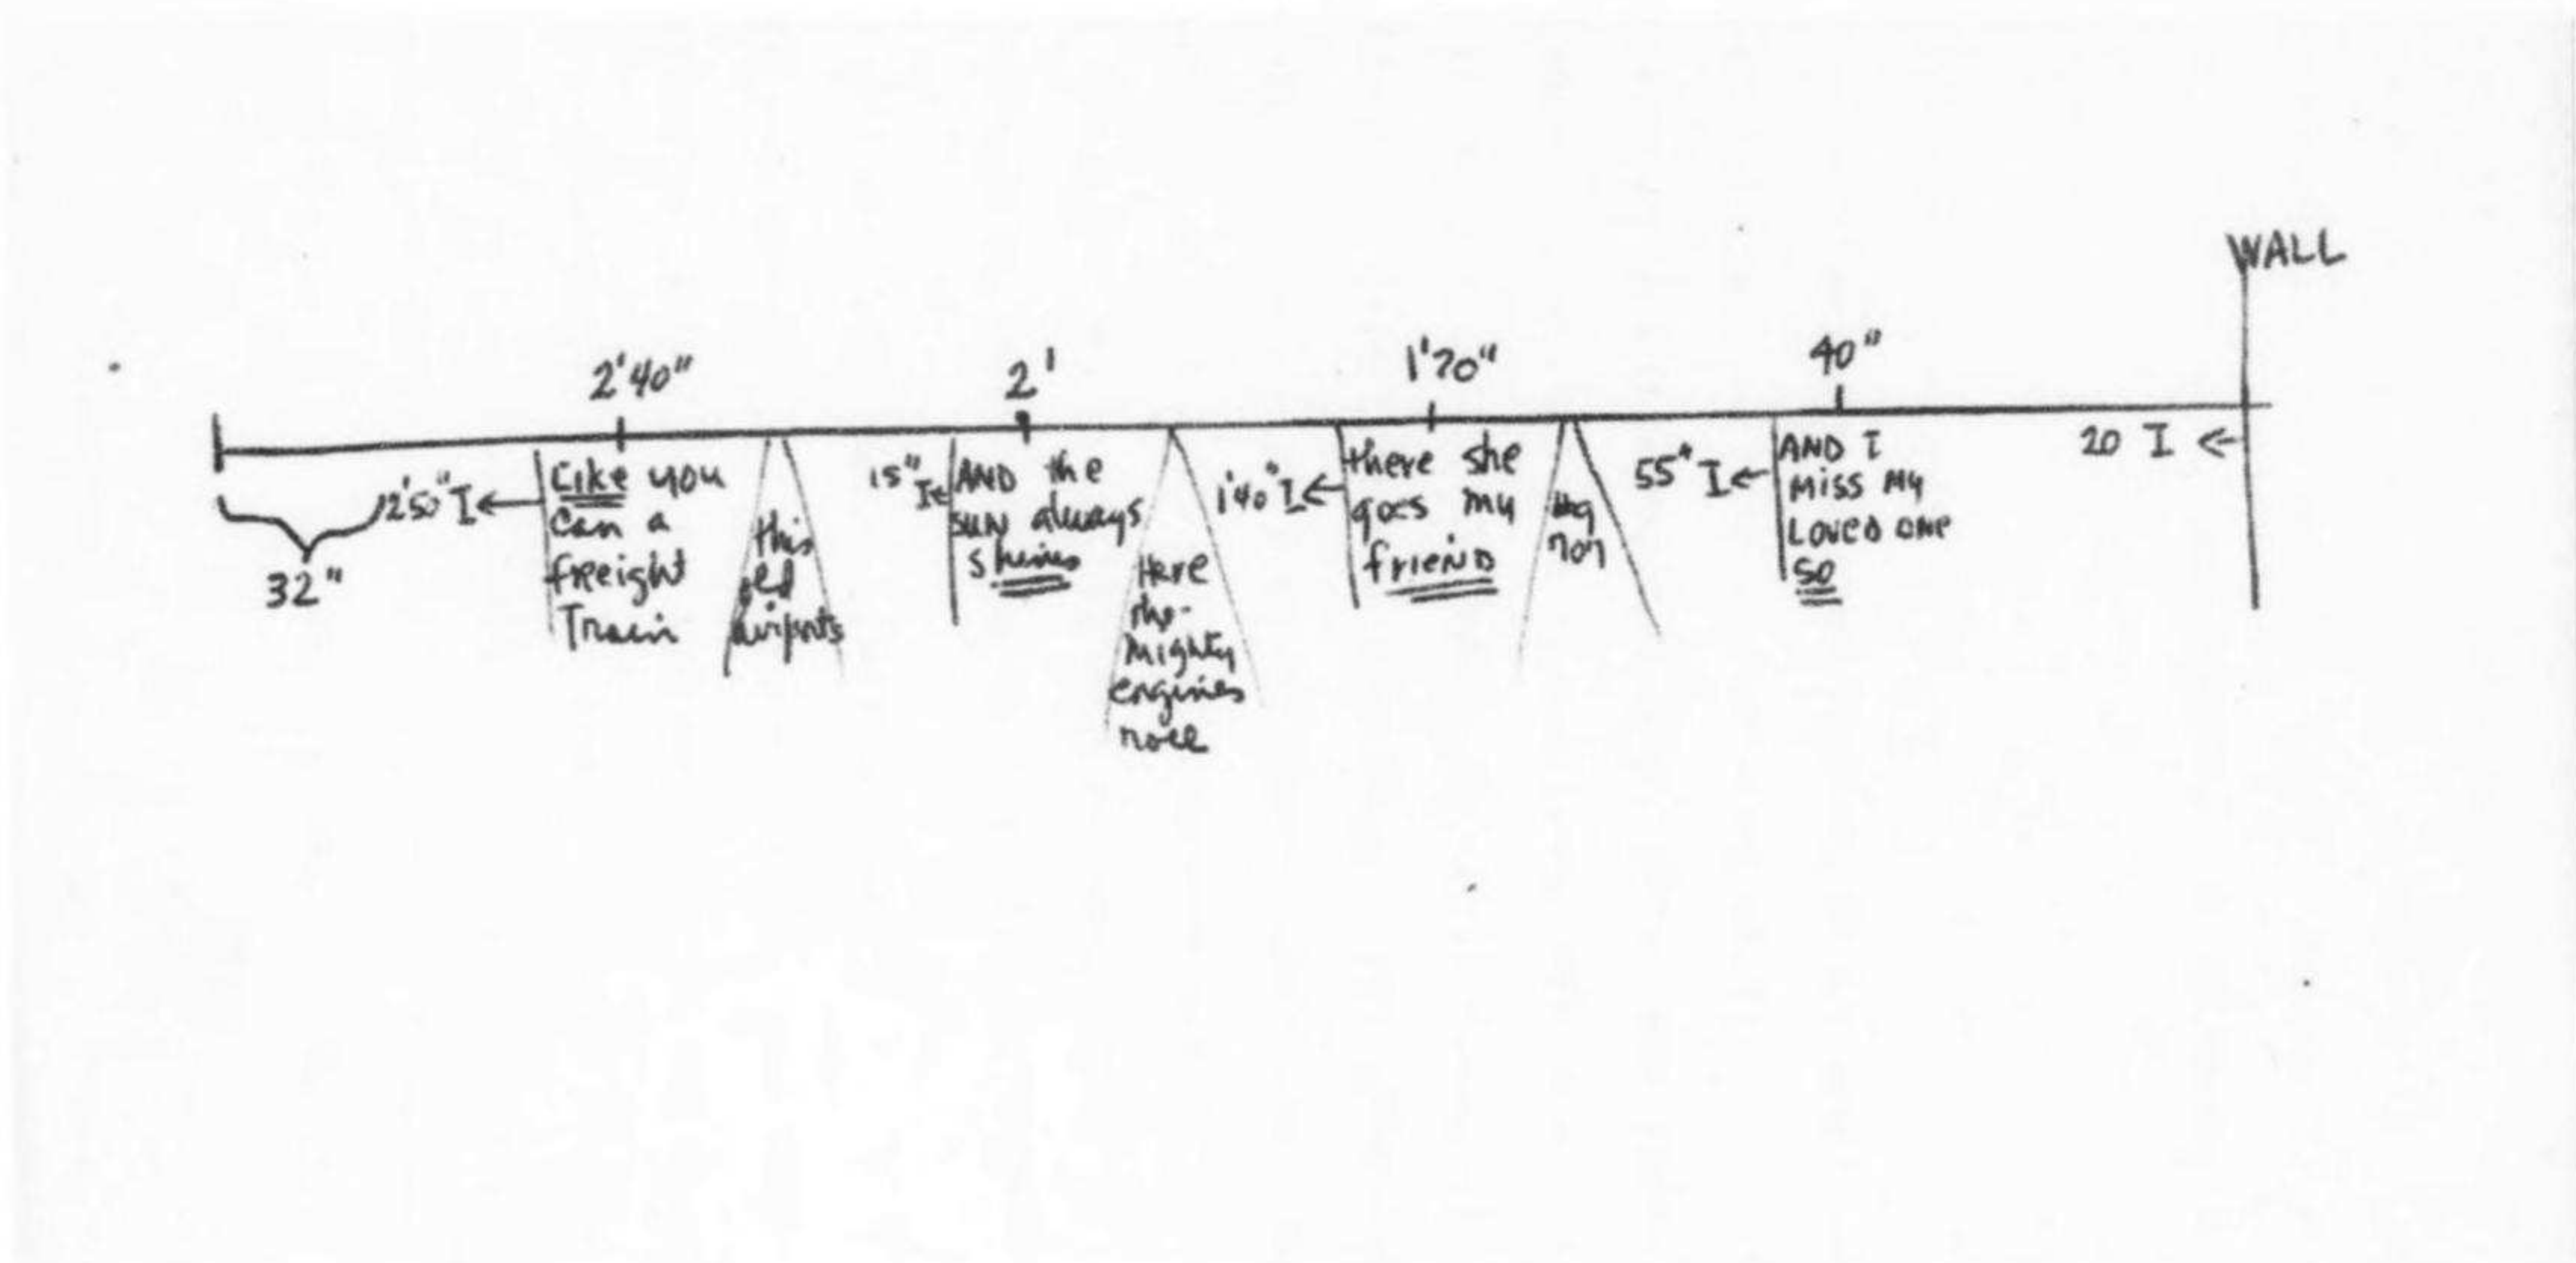 WALL
2'40"
2'
1'20"
40"
32"
2'50" I ←
Like you
can a
freight
Train
this
old
airports
15" I ←
AND the
sun always
shines
Here
the
mighty
engines
1'40" I ←
there she
goes my
friend
55" I ←
AND I
MISS MY
LOVED ONE
SO
20 I ←